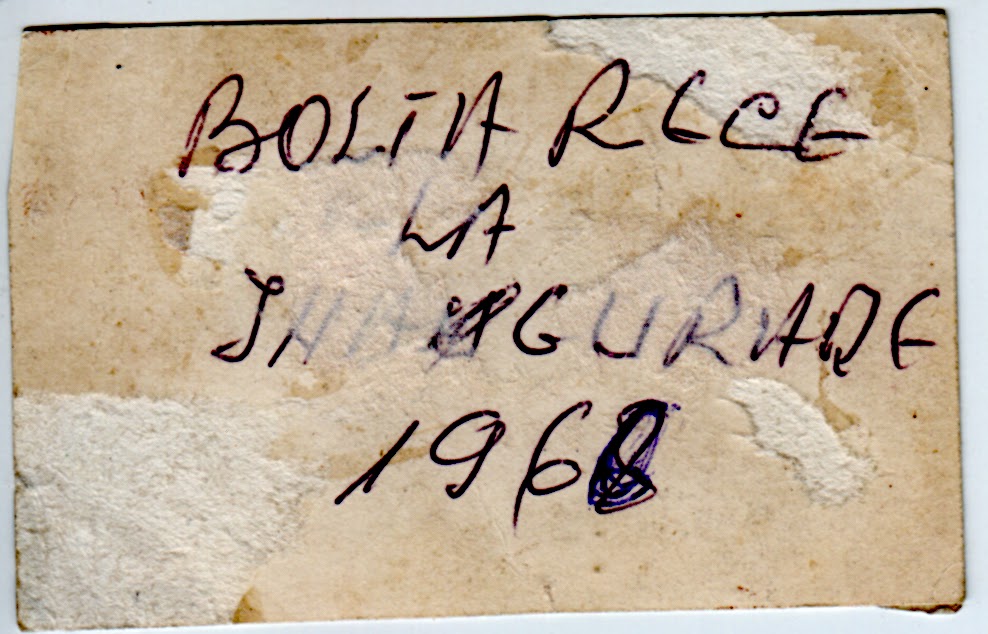 BOLTA RECE
LA
INAUGURARE
1968